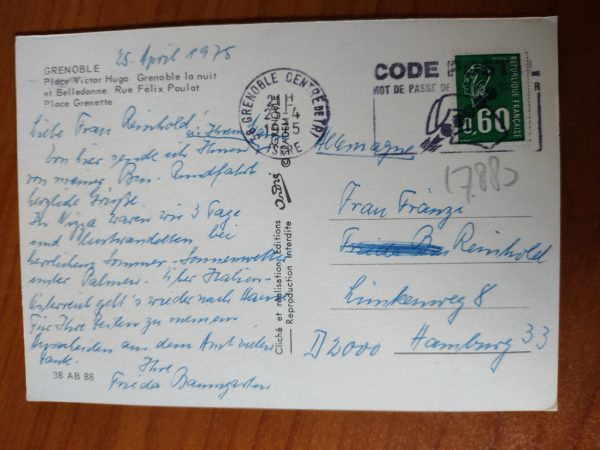 25. April 1975
GRENOBLE
Place Victor Hugo Grenoble la nuit
et Belledonne. Rue Félix Poulat
Place Grenette
Liebe Frau Reinhold!
Von hier sende ich Ihnen
von meiner Bus-Rundfahrt
herzliche Grüße.
In Nizza waren wir 3 Tage
und lustwandelten bei
herrlichem Sommer-Sonnenwetter
unter Palmen. Über Italien-
Österreich geht's wieder nach Hause
Für Ihre Zeilen zu meinem
Ausscheiden aus dem Amt vielen
Dank. Ihre
Frieda Baumgarten
38 AB 88
38 GRENOBLE CENTRE
ISERE
Cliché et réalisation Editions
Reproduction Interdite
CODE
MOT DE PASSE DE
REPUBLIQUE FRANÇAISE
0.60
17,88
Allemagne
Frau Fränze
Reinhold
Lünkenweg 8
D 2000 Hamburg 33